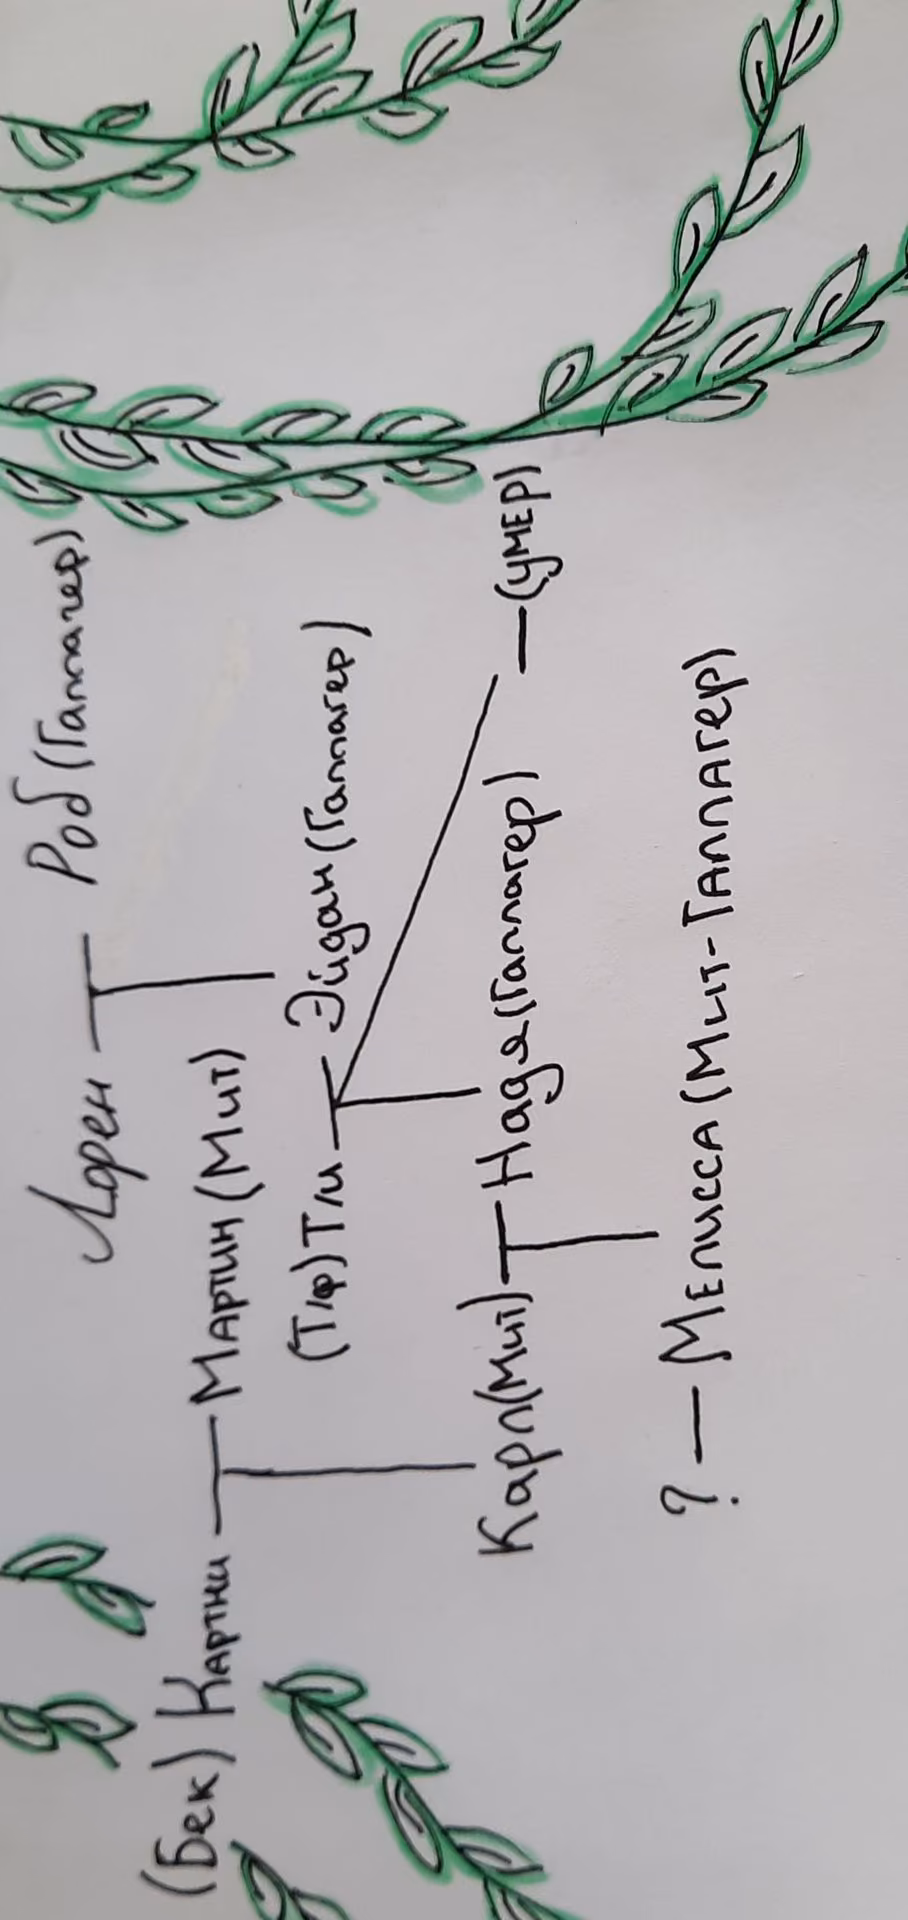 Лорен — Роб (Галлагер)
(Бек) Картни — Мартин (Мит)
(Т/ф) Т/и — Эйдан (Галлагер)
Карл (Мит) — Надя (Галлагер) — (умер)
? — Мелисса (Мит-Галлагер)